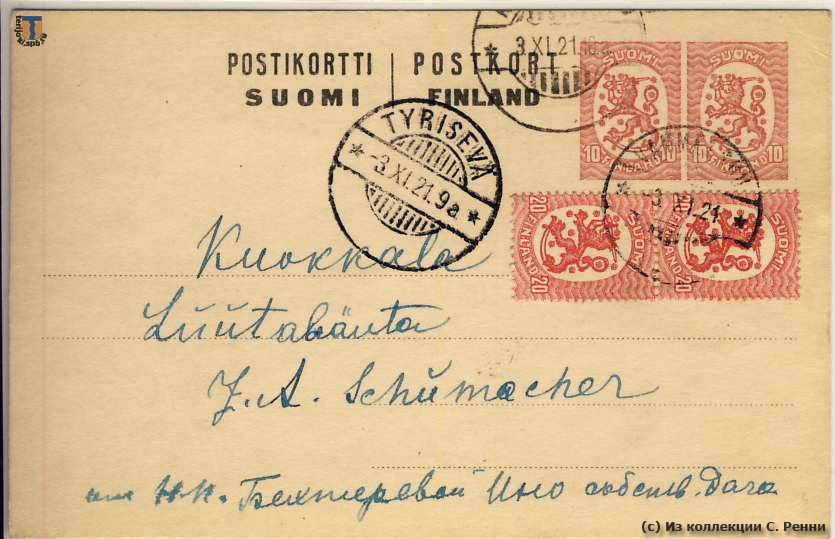 terijoki.spb.ru
POSTIKORTTI | POSTKORT
SUOMI | FINLAND
3.XI.21.
SUOMI SUOMI
10 FINLAND 10 10 FINLAND 10
TYRISEVÄ
-3.XI.21.9a
3.XI.21
20 FINLAND 20 SUOMI
20 FINLAND 20 SUOMI
Kuokkala
Luutahänta
J. A. Schumacher
или Н.Н. Бехтеревой Ино собств. дача
(c) Из коллекции С. Ренни